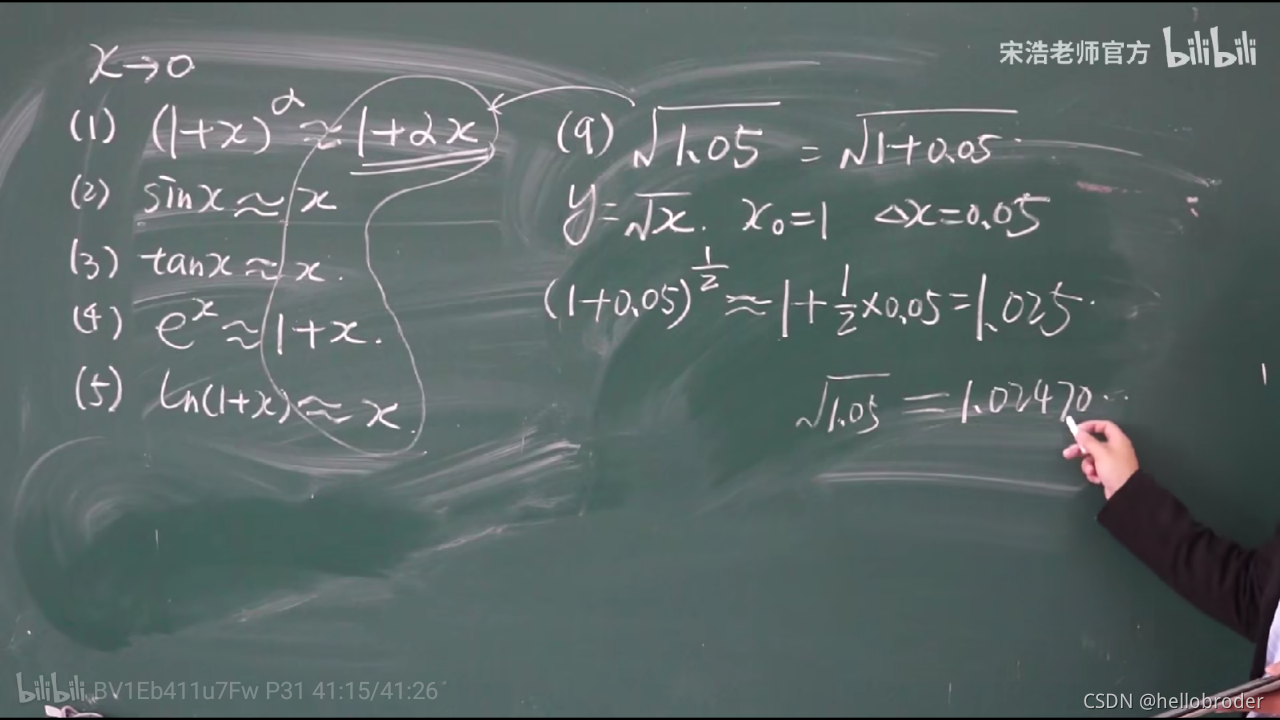 宋浩老师官方 bilibili
x→0
(1) (1+x)^α ≈ 1+αx
(2) sinx ≈ x
(3) tanx ≈ x.
(4) e^x ≈ 1+x.
(5) ln(1+x) ≈ x.
(9) √1.05 = √1+0.05
y=√x. x₀=1 △x=0.05
(1+0.05)^½ ≈ 1+½×0.05=1.025.
√1.05 = 1.02470...
bilibili BV1Eb411u7Fw P31 41:15/41:26
CSDN @hellobroder